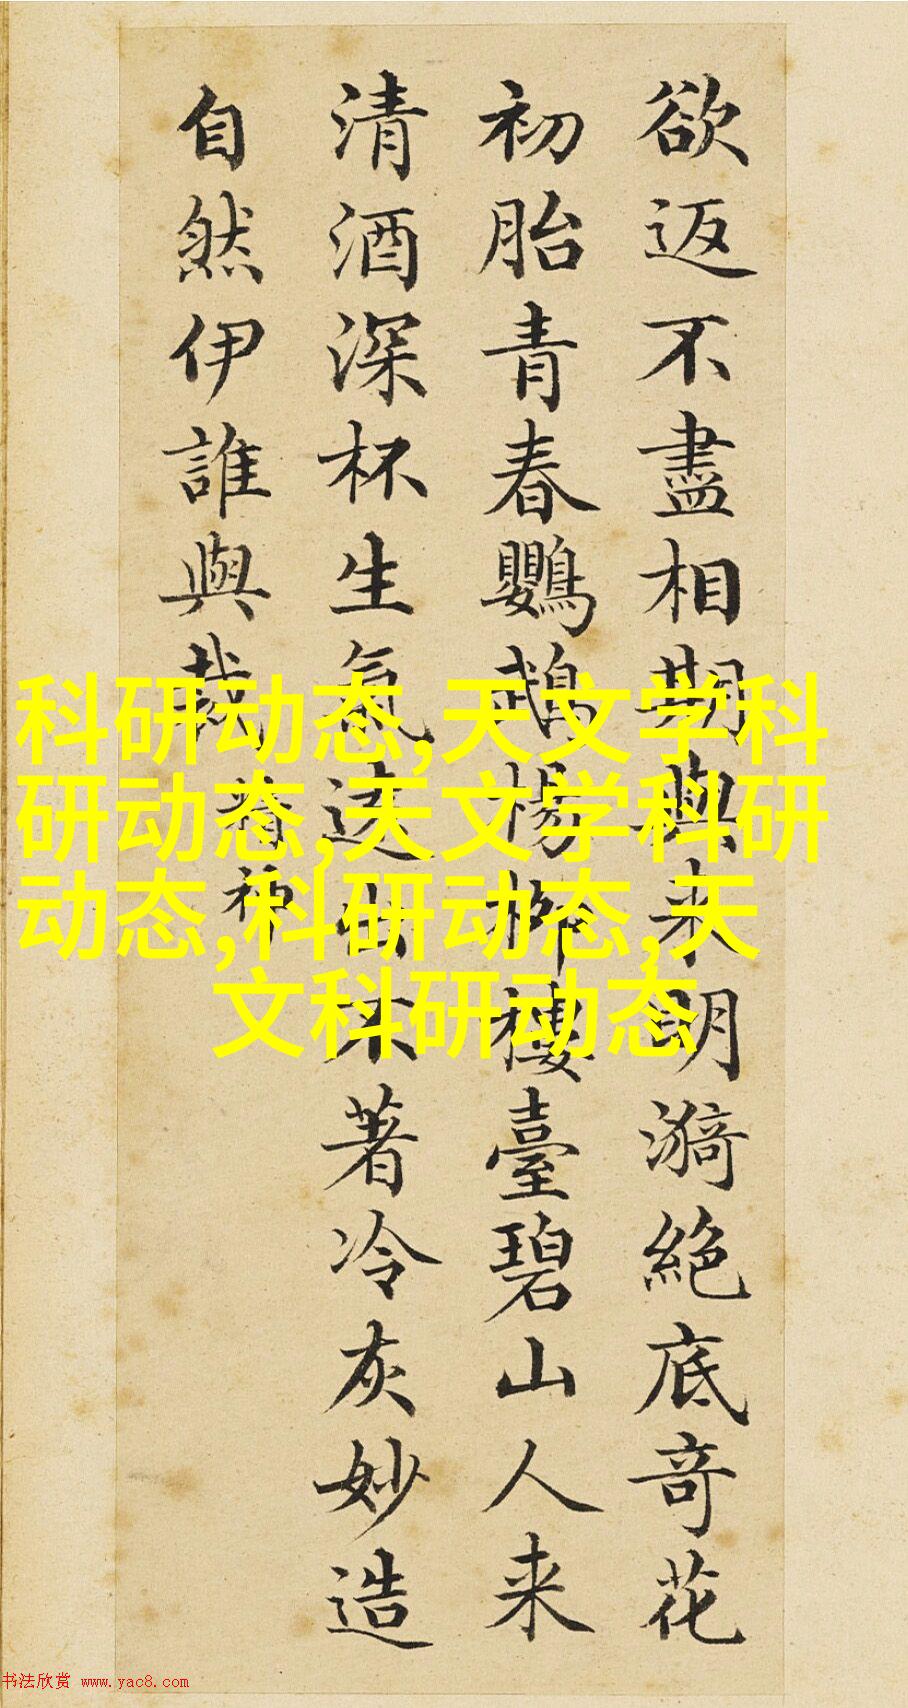 欲返不盡相期與来明漪絕底奇花
初胎青春鸚鵡楊柳樓臺碧山人来
清酒深杯生氣遠出不著冷灰妙造
自然伊誰與裁
精神
科研动态,天文学科
研动态,天文学科研
动态,科研动态,天
文科研动态
书法欣赏 www.yac8.com